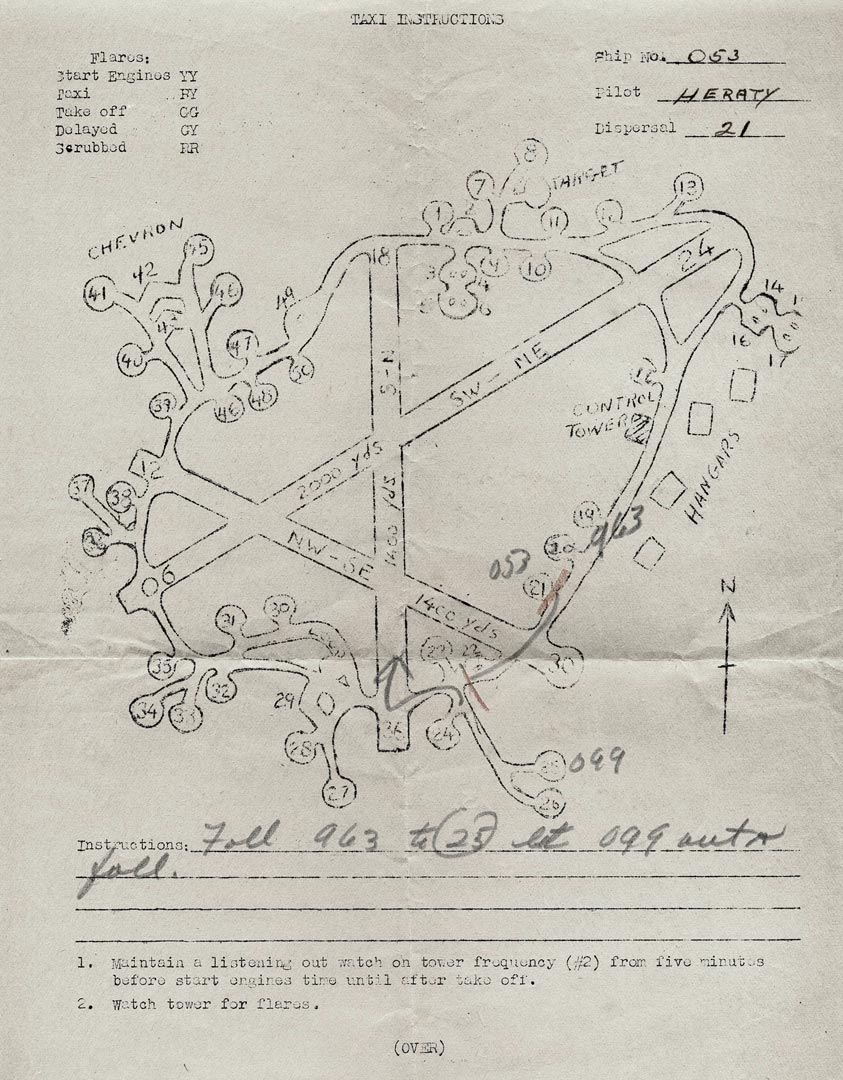 TAXI INSTRUCTIONS
Flares:
Start Engines YY
Taxi RY
Take off GG
Delayed GY
Scrubbed RR
Ship No. 053
Pilot HERATY
Dispersal 21
8
7
TARGET
13
1
11
CHEVRON
45
18
24
42
3
4
10
41
46
49
14
6
16
17
47
S-N
SW-NE
40
50
48
CONTROL
TOWER
39
HANGARS
12
2000 yds
37
38
1400 yds
19
963
20
NW-SE
053
21
N
06
1400 yds
30
31
22
35
32
29
34
33
36
24
28
25 099
27
26
Instructions: Foll 963 to (25) let 099 out &
foll.
1. Maintain a listening out watch on tower frequency (#2) from five minutes
before start engines time until after take off.
2. Watch tower for flares.
(OVER)